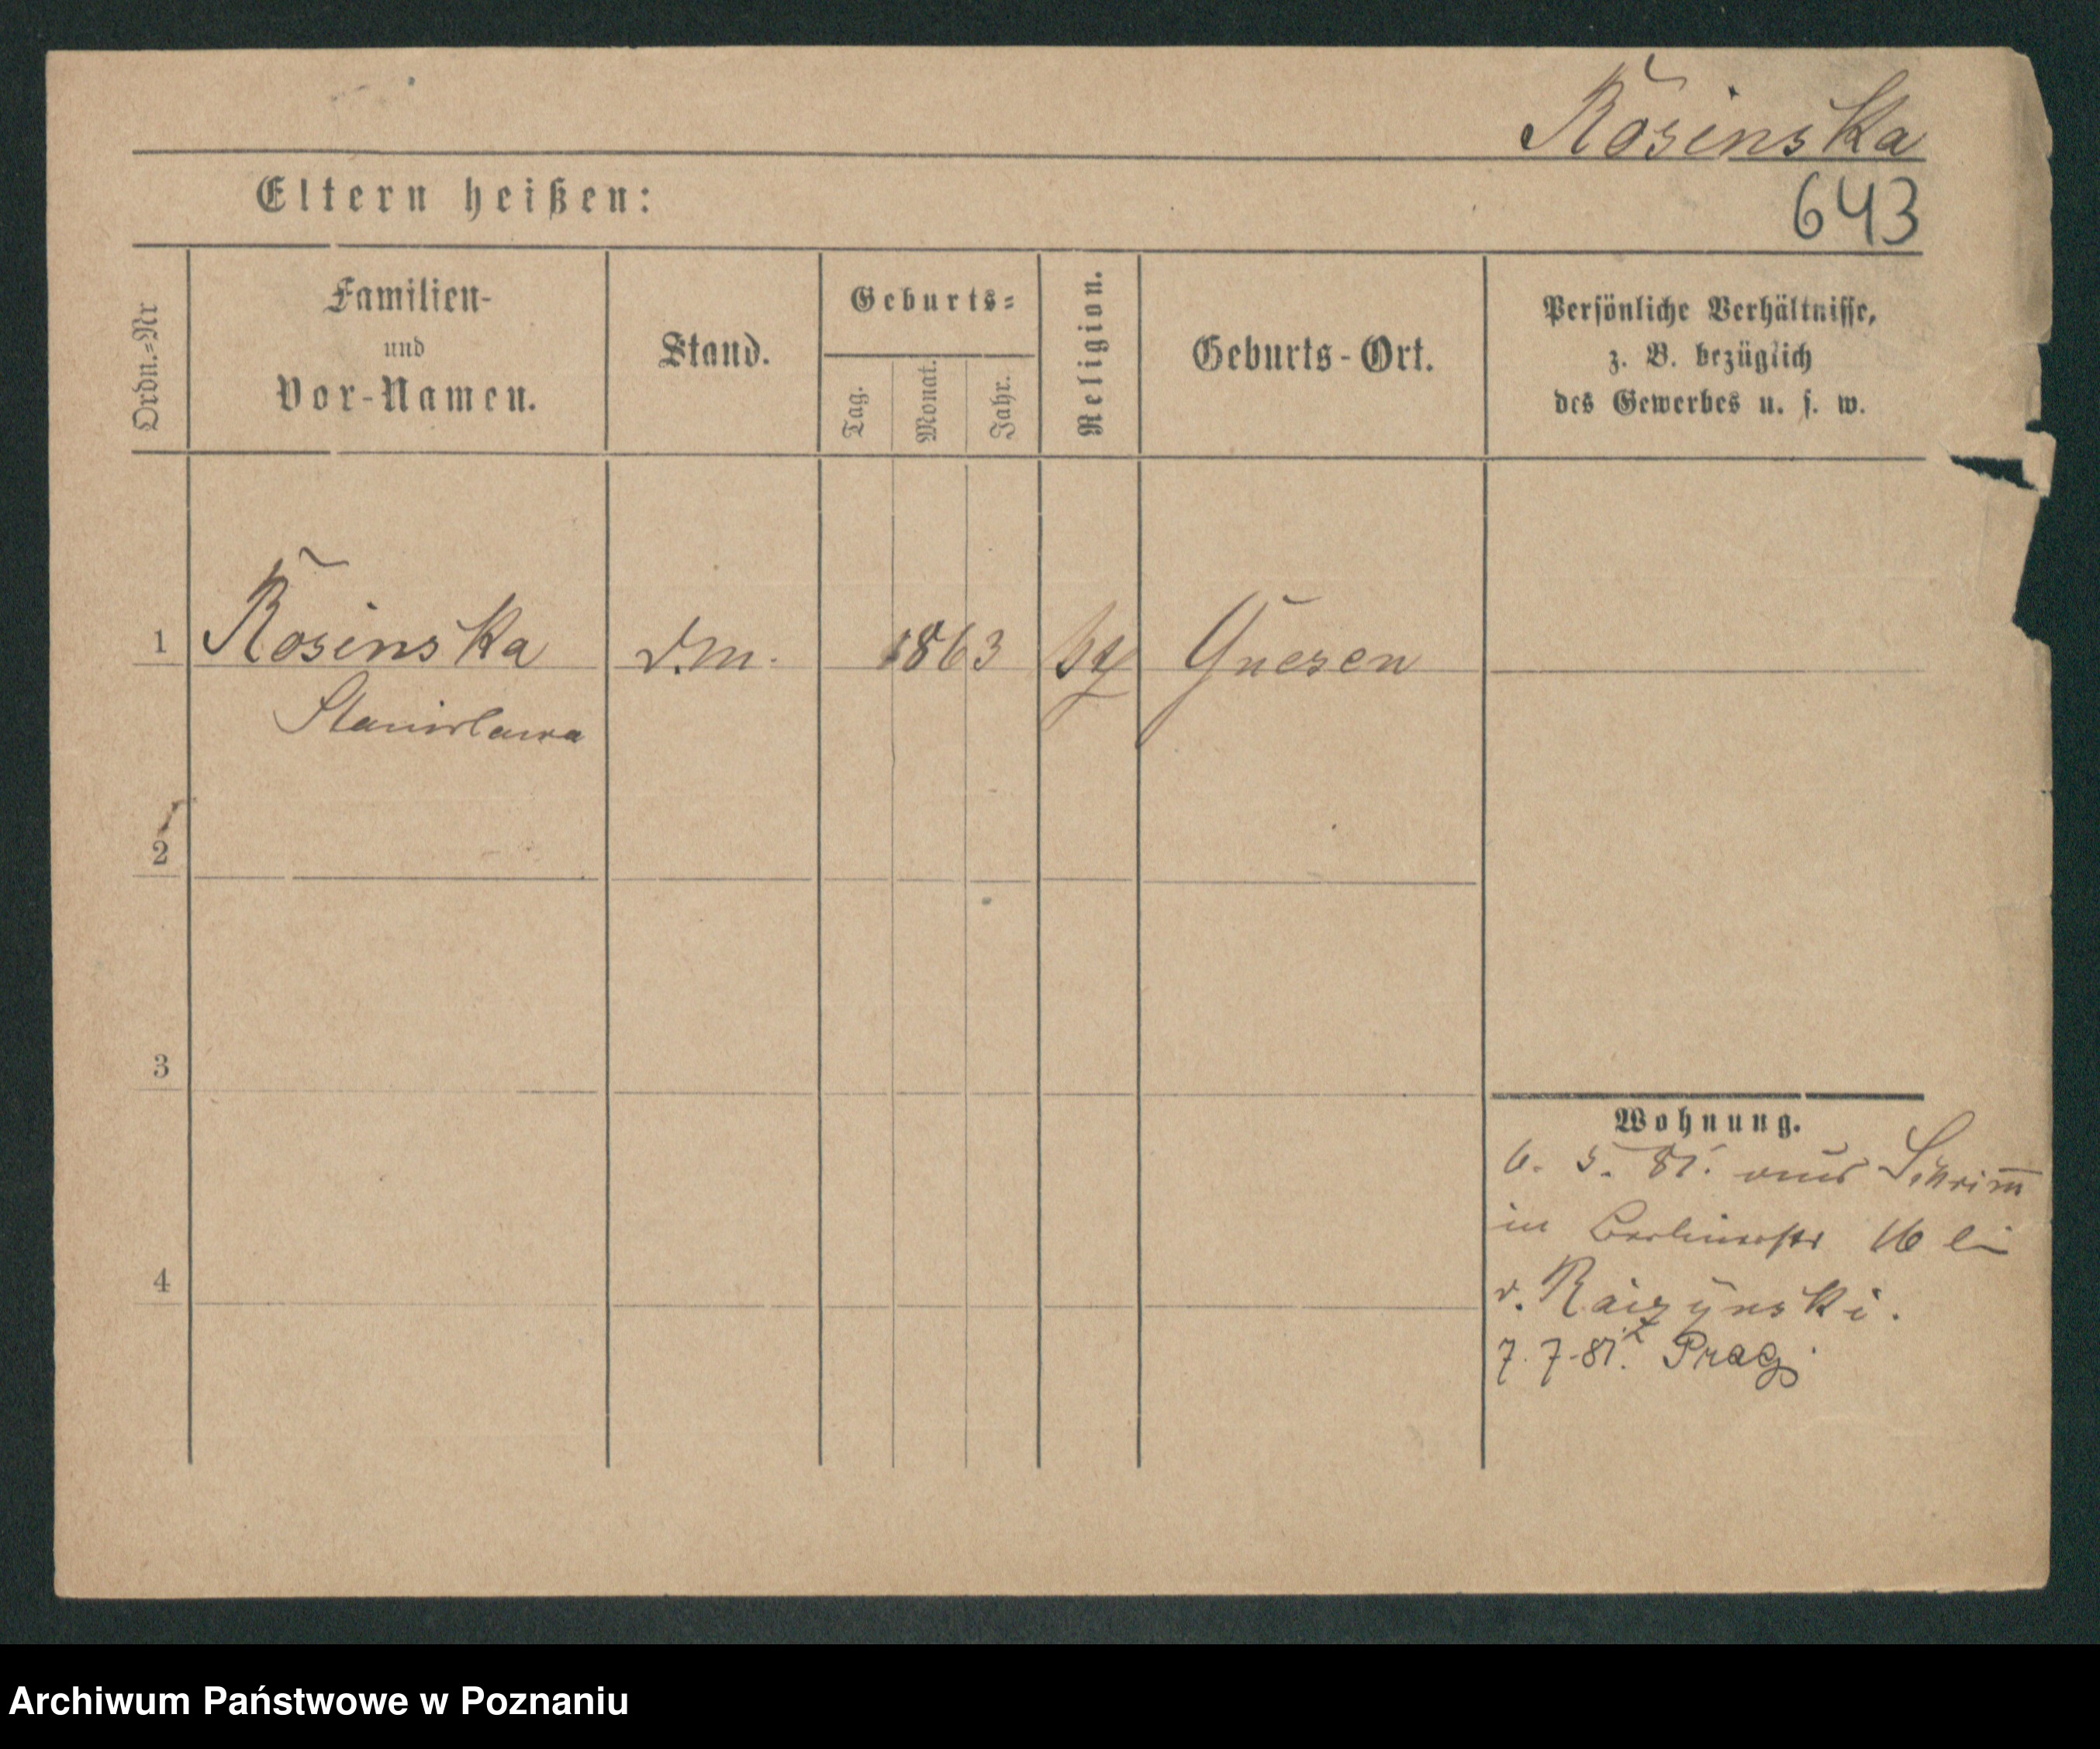 Rosinska
Eltern heißen:
643
Ordn.=Nr
Familien-
und
Vor-Namen.
Stand.
Geburts=
Tag.
Monat.
Jahr.
Religion.
Geburts-Ort.
Persönliche Verhältnisse,
z. B. bezüglich
des Gewerbes u. s. w.
1 Rosinska d.m. 1863 Gnesen
Stanislawa
2
3
4
Wohnung.
6. 5. 81. aus Schrim̅
in Berlinerstr 16 bei
v. Raczynski.
7. 7. 81.
Archiwum Państwowe w Poznaniu